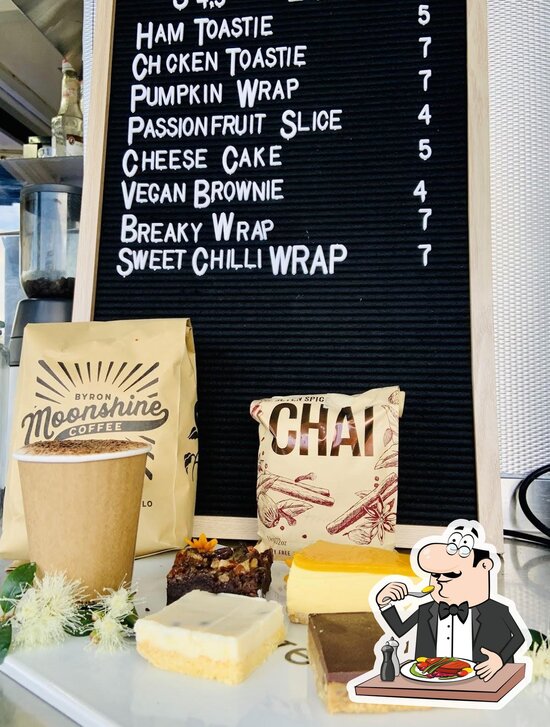 HAM TOASTIE 5
CHCKEN TOASTIE 7
PUMPKIN WRAP 7
PASSIONFRUIT SLICE 4
CHEESE CAKE 5
VEGAN BROWNIE 4
BREAKY WRAP 7
SWEET CHILLI WRAP 7
BYRON
Moonshine
COFFEE
CHAI